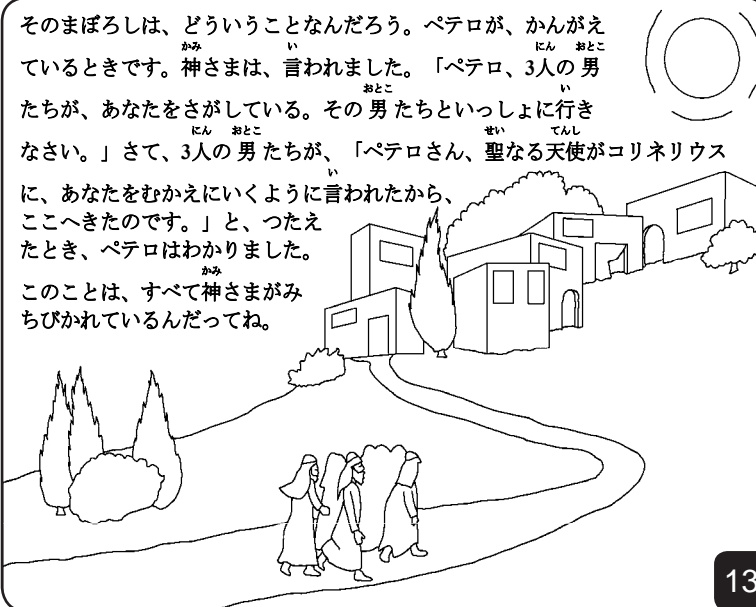 そのまぼろしは、どういうことなんだろう。ペテロが、かんがえ
ているときです。神さまは、言われました。「ペテロ、3人の男
たちが、あなたをさがしている。その男たちといっしょに行き
なさい。」さて、3人の男たちが、「ペテロさん、聖なる天使がコリネリウス
に、あなたをむかえにいくように言われたから、
ここへきたのです。」と、つたえ
たとき、ペテロはわかりました。
このことは、すべて神さまがみ
ちびかれているんだってね。
13